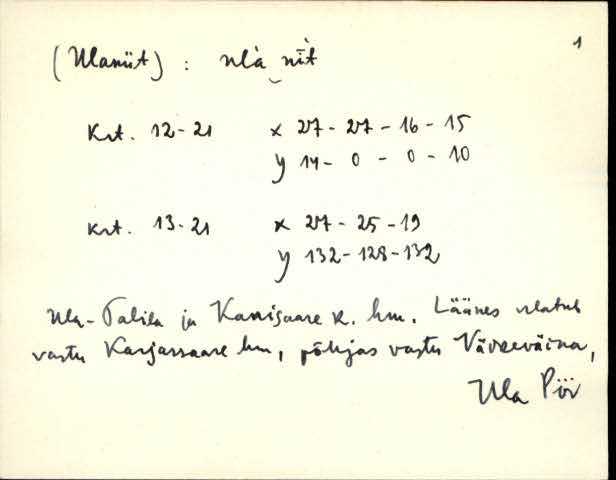 1
(Ulaniit) : ula niit
Krt. 12-21 x 27 - 27 - 16 - 15
y 14 - 0 - 0 - 10
Krt. 13-21 x 27 - 25 - 19
y 132 - 128 - 132
Ula-Talila ja Kanisaare k. hm. Läänes ulatub
vastu Karjassaare hm, põhjas vastu
Ula Pöör